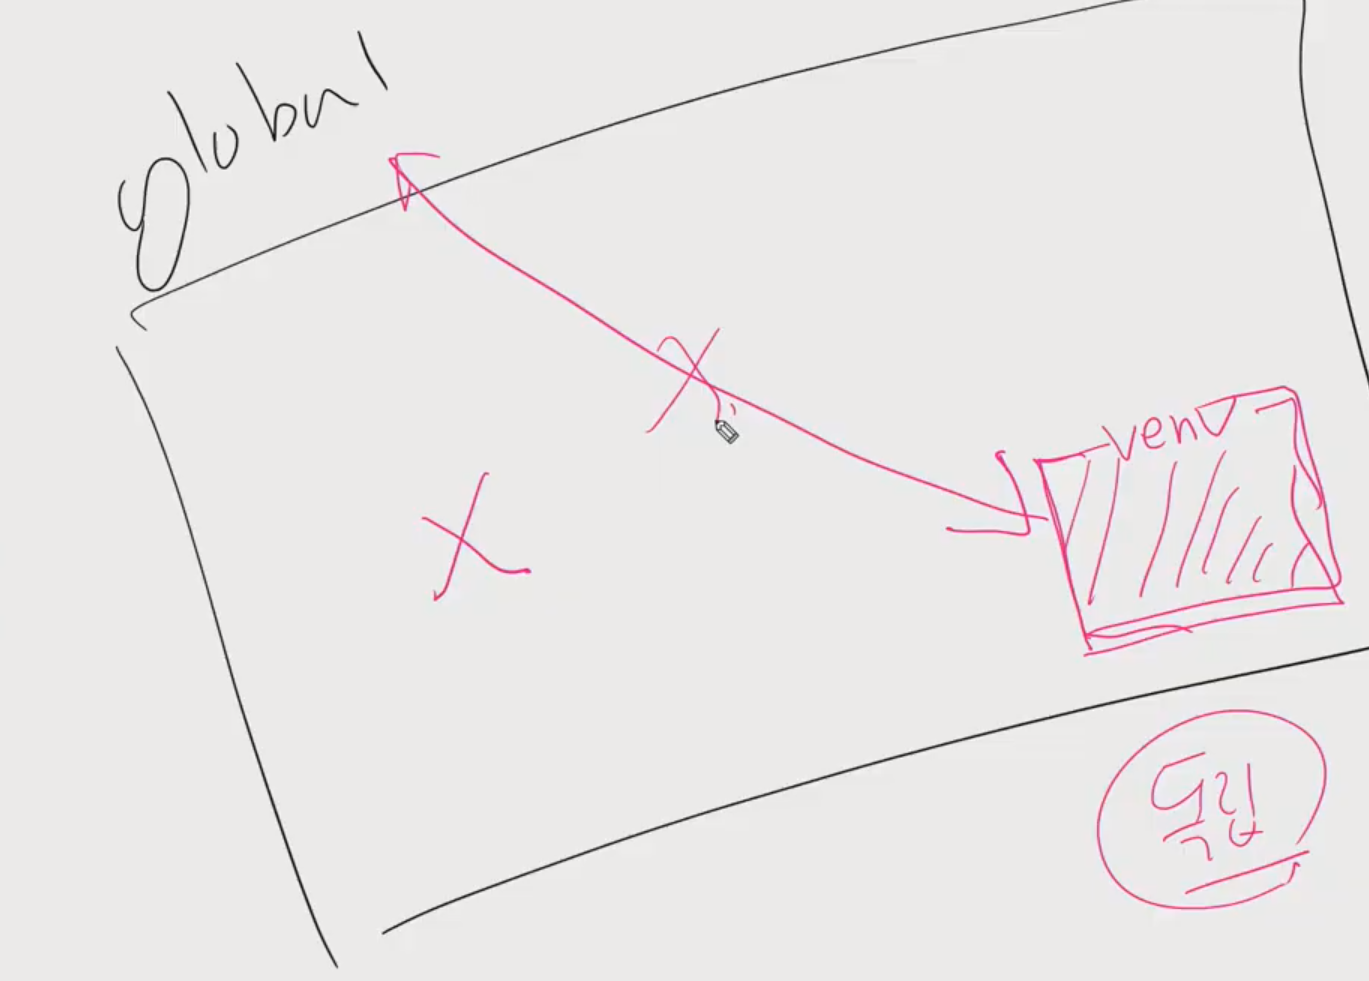 global
venv
독립